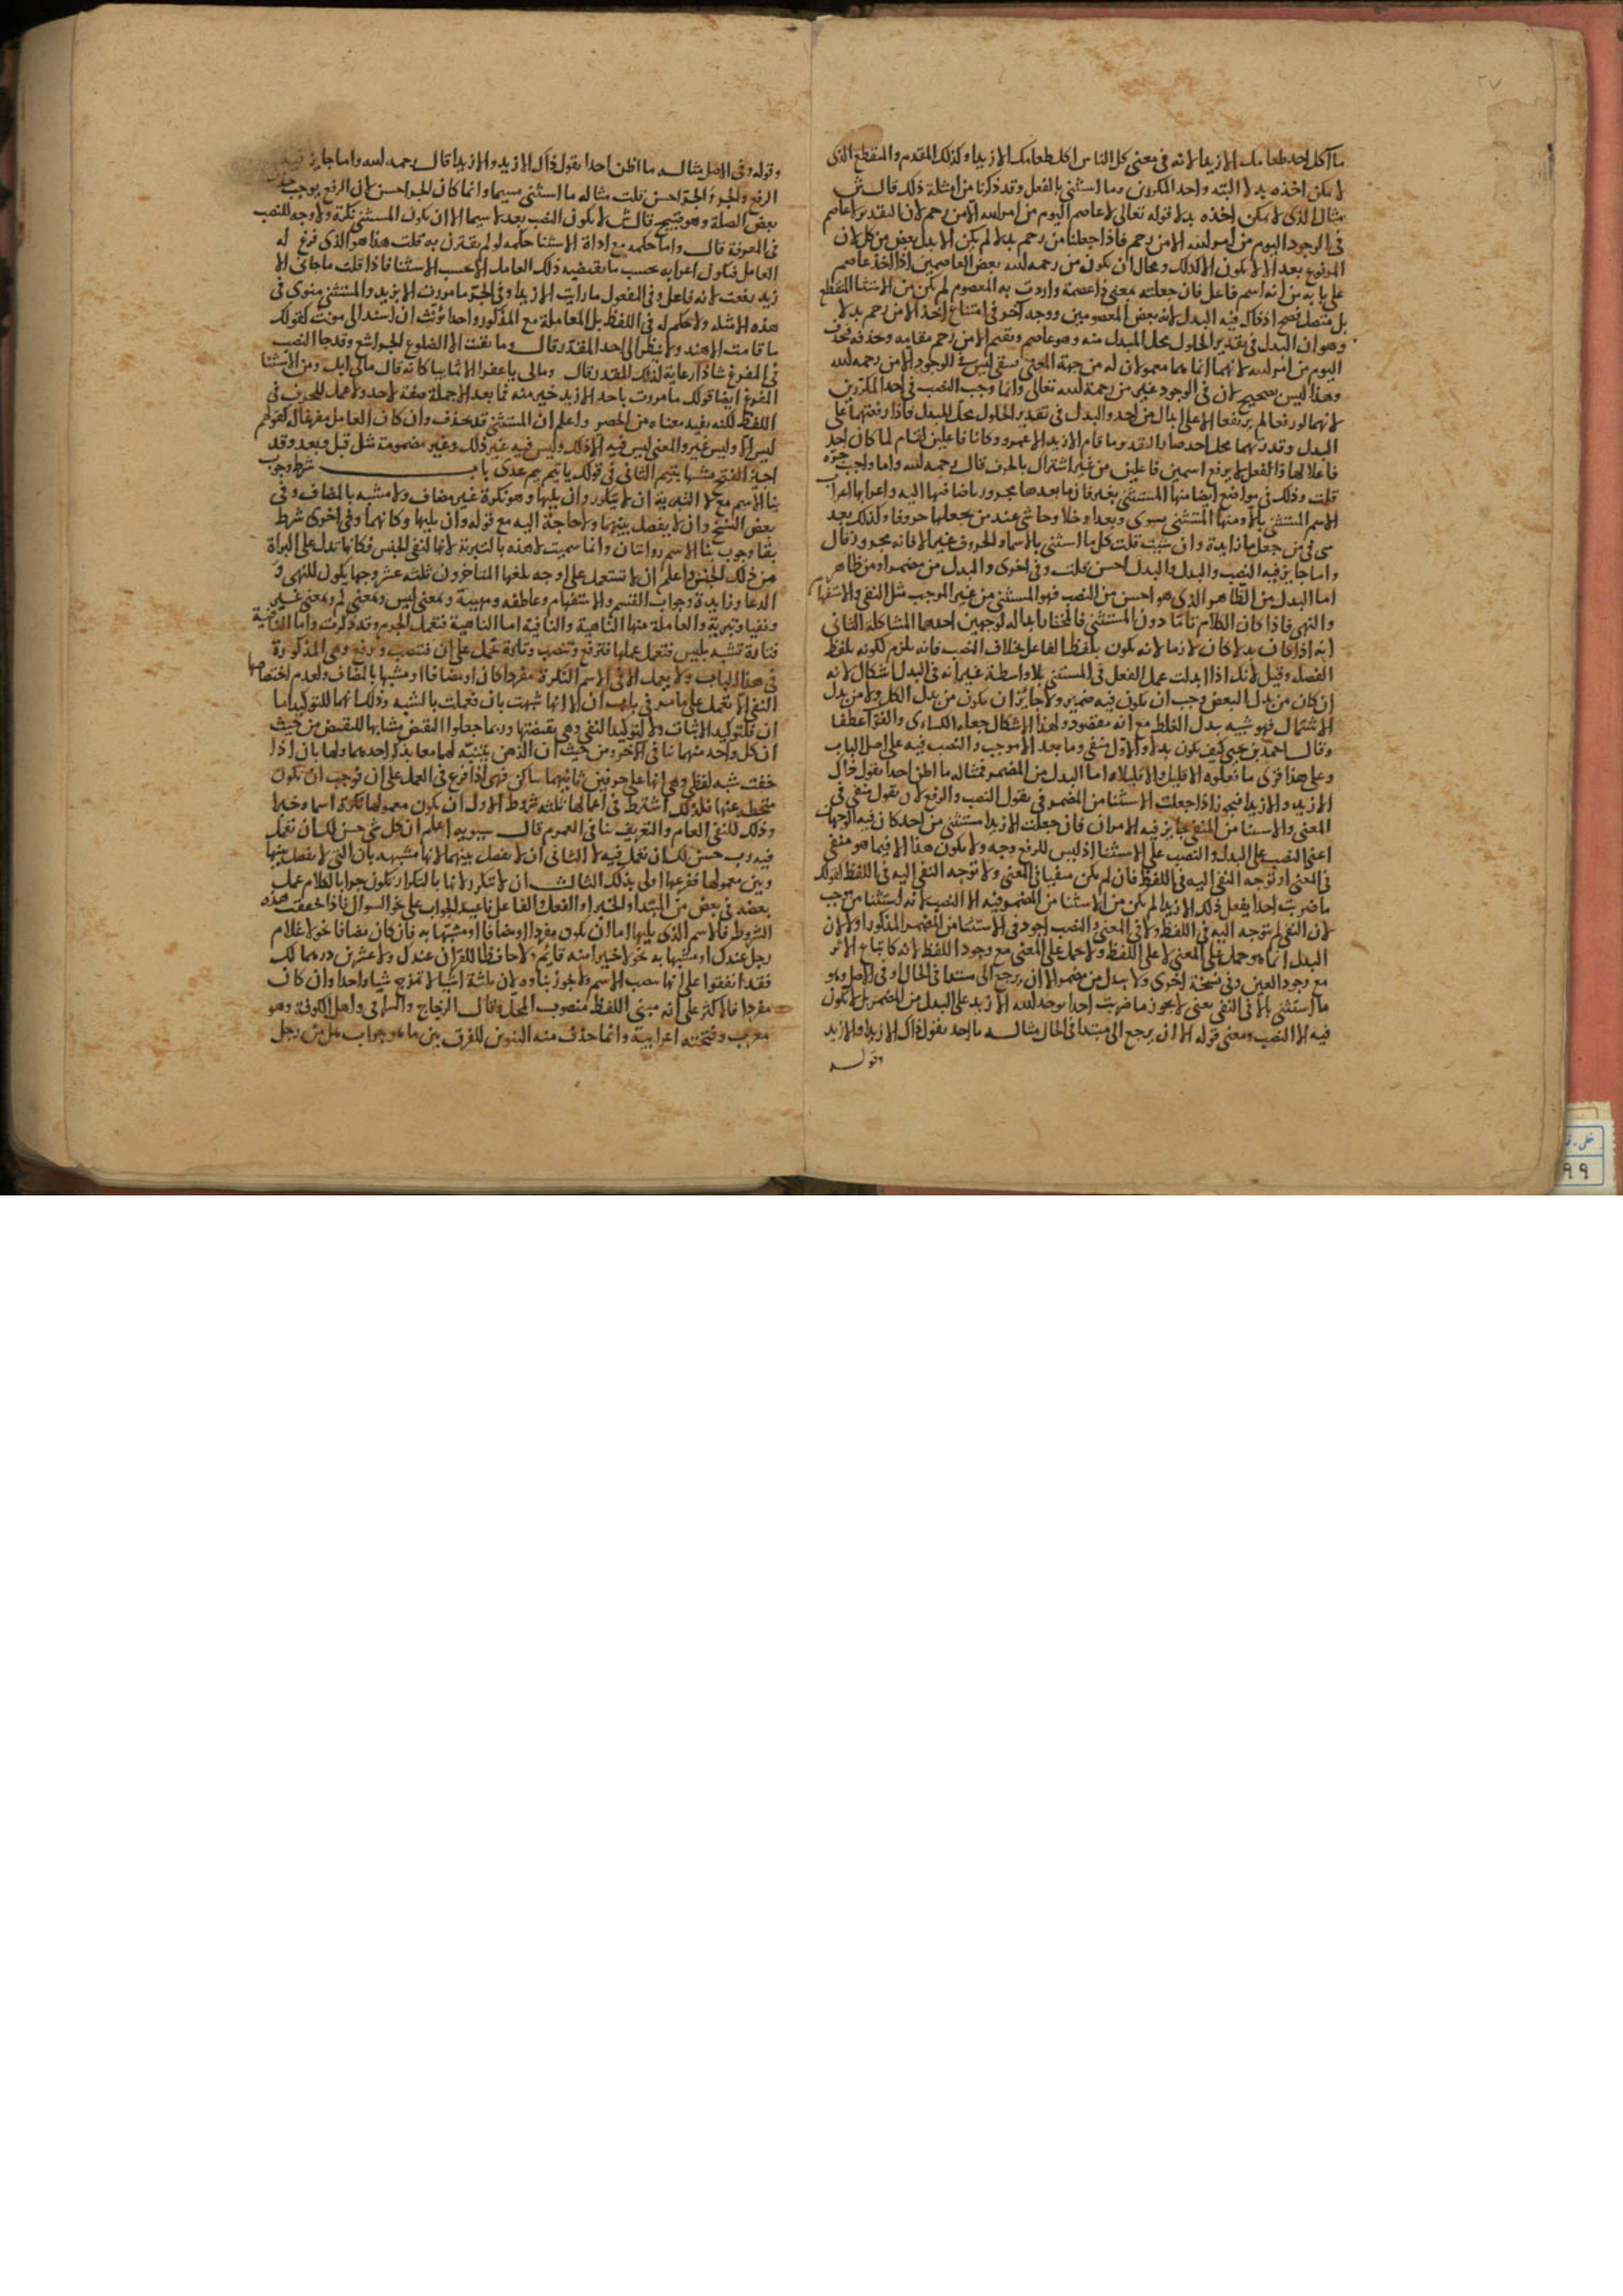 ٢٧
ما اكل احد طعامك الا زيدا لانه في معنى كل الناس اكل طعامك الا زيدا وكذلك المقدم والمنقطع الذي
لا يمكن اخذه بدلا البته واحد المكررين وما استثني بالفعل وقد ذكرنا من امثلة ذلك قال
مثال الذي لا يمكن اخذه بدلا قوله تعالى لا عاصم اليوم من امر الله الا من رحم لان التقدير لا عاصم
في الوجود اليوم من امر الله الا من رحم فاذا جعلنا من رحم بدلا لم يكن الا بدل بعض من كل لان
المرفوع بعد الا لا يكون الا كذلك ومحال ان يكون من رحمه الله بعض العاصمين اذا اخذ عاصم
على بابه من انه اسم فاعل فان جعلته بمعنى ذا عصمة واردت به المعصوم لم يكن من الاستثنا المنقطع
بل متصل فصح اذ ذاك فيه البدل لانه بعض المعصومين ووجه آخر في امتناع اخذ الا من رحم بدلا
وهو ان البدل في تقدير الحلول محل المبدل منه وهو عاصم وتقيم الا من رحم مقامه وحذفه
اليوم من امر الله لانهما انما هما معمولان له من جهة المعنى يبقى ليس في الوجود الا من رحمه الله
وهذا ليس بصحيح لان في الوجود غير من رحمة الله تعالى وانما وجب النصب في احد المكررين
لانهما لو رفعا لم يرتفعا الا على ابدال من احد والبدل في تقدير الحلول محل المبدل فاذا رفعتهما على
البدل وقدرتهما محل احد صار التقدير ما قام الا زيد الا عمرو وكانا فاعلين لقام لما كان احد
فاعلا لها ذا الفعل لا يرفع اسمين فاعلين من غير اشتراك بالحرف قال رحمه الله واما واجب جره
قلت وذلك في مواضع ايضا منها المستثنى بغير فان ما بعدها مجرور باضافتها اليه واعرابها اعراب
الاسم المستثنى بالا ومنها المستثنى بسوى وبعدا وخلا وحاشى عند من يجعلها حروفا وكذلك بعد
سي في من جعل ما زايدة وان شئت قلت كل ما استثني بالاسما والحروف غير الا فانه مجرور قال
واما جايز فيه النصب والبدل والبدل احسن قلت وفي اخرى والبدل من مضمر او من ظاهر
اما البدل من الظاهر الذي هو احسن من النصب فهو المستثنى من غير الموجب مثل النفي والاستفهام
والنهي فاذا كان الكلام تاما دون المستثنى فالمختار ابداله لوجهين احدهما المشاكلة الثاني
انه اذا كان بدلا كان لازما لانه يكون بلفظ الفاعل بخلاف النصب فانه يلزم لكونه بلفظ
الفضله وقيل لانك اذا ابدلت عمل الفعل في المستثنى بلا واسطة غير انه في البدل اشكال لانه
ان كان من بدل البعض وجب ان يكون فيه ضمير ولا جايز ان يكون من بدل الكل ولا من بدل
الاشتمال فهو شبيه ببدل الغلط مع انه مقصود ولهذا الاشكال جعله الكساءى والفرا عطفا
وقال احمد بن يحيى كيف يكون بدلا والاول منفي وما بعد الا موجب والنصب فيه على اصل الباب
وعلى هذا قرى ما فعلوه الا قليل والا قليلا واما البدل من المضمر فمثاله ما اظن احدا يقول ذاك
الا زيد والا زيدا فيجوز اذا جعلت الاستثنا من المضمر في يقول النصب والرفع لان يقول منفي في
المعنى والاستثنا من المنفي جايز فيه الامران فان جعلت الا زيدا مستثنى من احد كان فيه الوجهان
اعني النصب على البدل والنصب على الاستثنا اذ ليس للرفع وجه ولا يكون هذا الا فيما هو منفي
في المعنى او توجه النفي اليه في اللفظ فان لم يكن منفيا في المعنى ولا توجه النفي اليه في اللفظ كقولك
ما ضربت احدا يفعل ذلك الا زيدا لم يكن من الاستثنا من المضمر فيه الا النصب لانه استثنا من موجب
لان النفي لم يتوجه اليه في اللفظ ولا في المعنى والنصب اجود في الاستثنا من المضمر المذكور اولا لان
البدل انما هو حمل على المعنى لا على اللفظ ولا حمل على المعنى مع وجود اللفظ لانه كاتباع الاثر
مع وجود العين وفي نسخة اخرى ولا يبدل من مضمر الا ان يرجع الى مبتدا في الحال او في الاصل وهو
ما استثني بالا في النفي يعني لا يجوز ما ضربت احدا يوحد الله الا زيد على البدل من المضمر بل لا يكون
فيه الا النصب ومعنى قوله الا ان يرجع الى مبتدا في الحال مثاله ما احد يقول ذاك الا زيدا والا زيد
وقوله
وقوله وفي الاصل مثاله ما اظن احدا يقول ذاك الا زيد والا زيدا قال رحمه الله واما جايز فيه
الرفع والجر والجر احسن قلت مثاله ما استثني بسيما وانما كان الجر احسن لان الرفع يوجب حذف
بعض الصلة وهو قبيح قال ولا يكون النصب بعد لا سيما الا ان يكون المستثنى نكرة ولا وجه للنصب
في المعرفة قال واما حكمه مع اداة الاستثنا حكمه لو لم يقترن به قلت هذا هو الذي فرغ له
العامل فيكون اعرابه بحسب ما يقتضيه ذلك العامل لا بحسب الاستثنا فاذا قلت ما جاني الا
زيد رفعت لانه فاعل وفي المفعول ما رايت الا زيدا وفي الجر ما مررت الا بزيد والمستثنى منوي في
هذه الامثله ولا حكم له في اللفظ بل المعاملة مع المذكور واحدا تؤنث ان اسند الى مونث كقولك
ما قامت الا هند ولا ينظر الى احد المقدر وقال وما بقيت الا الضلوع الجراشع وقد جا النصب
في المفرغ شاذا رعاية لذلك المقدر قال ومالي يا عفرا الا ثمانيا كانه قال مالي ابل ومن الاستثنا
المفرغ ايضا قولك ما مررت باحد الا زيد خير منه فما بعد الا جملة صفة لاحد ولا عمل للحرف في
اللفظ لكنه يفيد معناه من الحصر واعلم ان المستثنى قد يحذف وان كان العامل مفرغا له كقولهم
ليس الا وليس غير والمعنى ليس فيه الا ذلك وليس فيه غير ذلك وغير مضمومة مثل قبل وبعد وقد
اجيز الفتح مشبها بتيم الثاني في قولك يا تيم تيم عدي باب شرط وجوب
بنا الاسم مع لا التبرية ان لا يتكرر وان يليها وهو نكرة غير مضاف ولا مشبه بالمضاف وفي
بعض النسخ وان لا يفصل بينهما ولا حاجة اليه مع قوله وان يليها وكانهما وفي اخرى شرط
بقا وجوب بنا الاسم روايتان وانما سميت لا هذه بالتبرية لانها لنفي الجنس فكانها تدل على البراة
من ذلك الجنس واعلم ان لا تستعمل على اوجه بلغها المتاخرون ثلثه عشر وجها يكون للنهي و
الدعا وزايدة وجواب القسم والاستفهام وعاطفه ومهيبة وبمعنى ليس وبمعنى لم وبمعنى غير
ونفيا وتبرية والعاملة منها الناهية والنافية اما الناهية فتعمل الجزم وقد ذكرت واما النافية
فتارة تشبه بليس فتعمل عملها فترفع وتنصب وتارة تعمل عمل ان فتنصب وترفع وهي المذكورة
في هذا الباب ولا يعمل الا في الاسم النكرة مفردا كان او مضافا او مشبها بالمضاف ولعدم اختصاصها
النفي لا تعمل على ما مر في باب ان الا انها شبهت بان فعملت بالشبه وذلك انهما للتوكيد اما
ان فلتوكيد الاثبات ولا لتوكيد النفي وهي نقيضتها وربما جعلوا النقيض مشابها للنقيض من حيث
ان كل واحد منهما ينافي الآخر ومن حيث ان الذهن يتنبه لهما معا بذكر احدهما ولها بان اذا
خففت شبه لفظي وهي انها على حرفين ثانيهما ساكن فهي اذا فرع في العمل على ان فوجب ان تكون
منحطه عنها فلذلك اشترط في اعمالها ثلثه شروط الاول ان يكون معمولها نكرة اسما وخبرا
وذلك للنفي العام والتعريف ينافي العموم قال سيبويه اعلم ان كل شي حسن لك ان تعمل
فيه رب حسن لك ان تعمل فيه لا الثاني ان لا يفصل بينهما لانها مشبهه بان التي لا يفصل بينها
وبين معمولها ففرعها اولى بذلك الثالث ان لا تتكرر لانها بالتكرار تكون جوابا لكلام عمل
بعضه في بعض من المبتدا والخبر او الفعل والفاعل فاعيد الجواب على نحو السوال فاذا حققت هذه
الشروط فالاسم الذي يليها اما ان يكون مفردا او مضافا او مشبها به فان كان مضافا نحو لا غلام
رجل عندك او مشبها به نحو لا خيرا منه قايم ولا حافظا للقران عندك ولا عشرين درهما لك
فقد اتفقوا على انها تنصب الاسم ولا يجوز بناوه لان ثلثة اشيا لا تمزج شيا واحدا وان كان
مفردا فالاكثر على انه مبني اللفظ منصوب المحل وقال الزجاج والسيرافي واهل الكوفة وهو
معرب وفتحته اعرابية وانما حذف منه التنوين للفرق بين ما هو جواب هل من رجل
٩٩